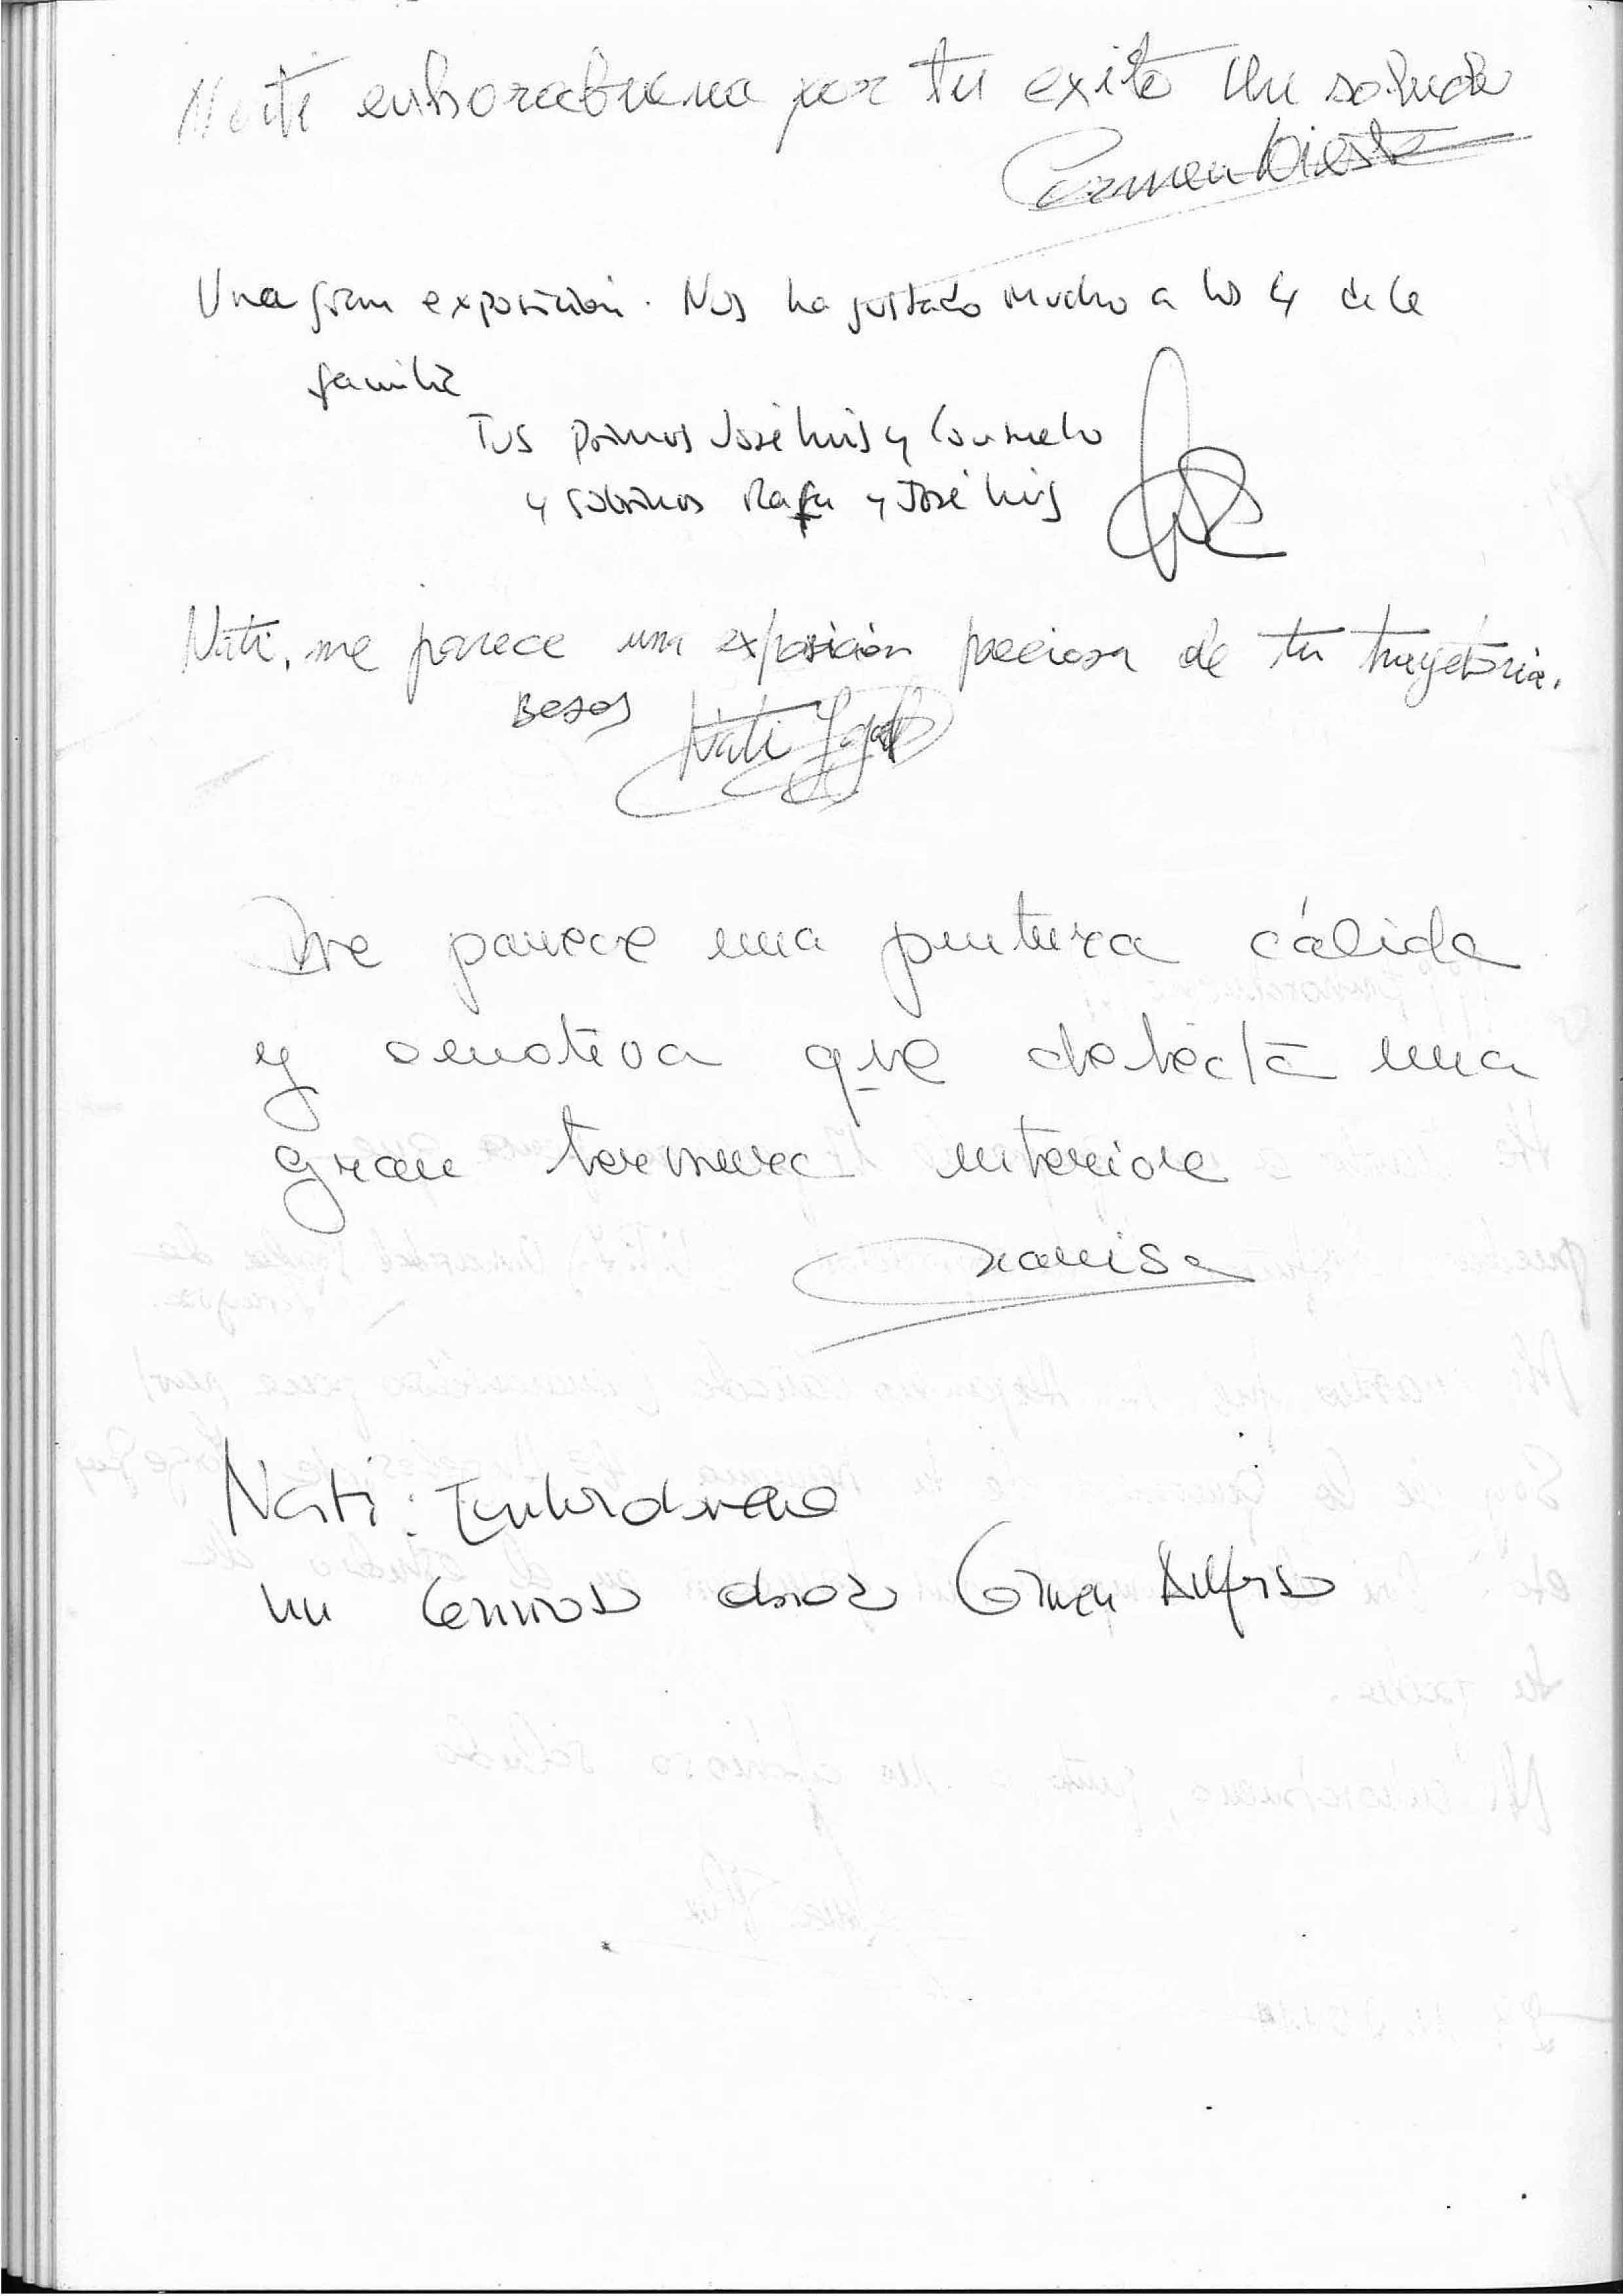 Nati enhorabuena por tu exito Un saludo
Carmen Dieste
Una gran exposición. Nos ha gustado mucho a los 4 de la
familia
Tus primos José Luis y Consuelo
y sobrinos Rafa y José Luis
Nati, me parece una exposición preciosa de tu trayetoria.
Besos Nati
Me parece una pintura cálida
y emotiva que detecta una
gran ternura interior
Nati: Enhorabuena
un cariñoso abrazo Carmen Alfonso